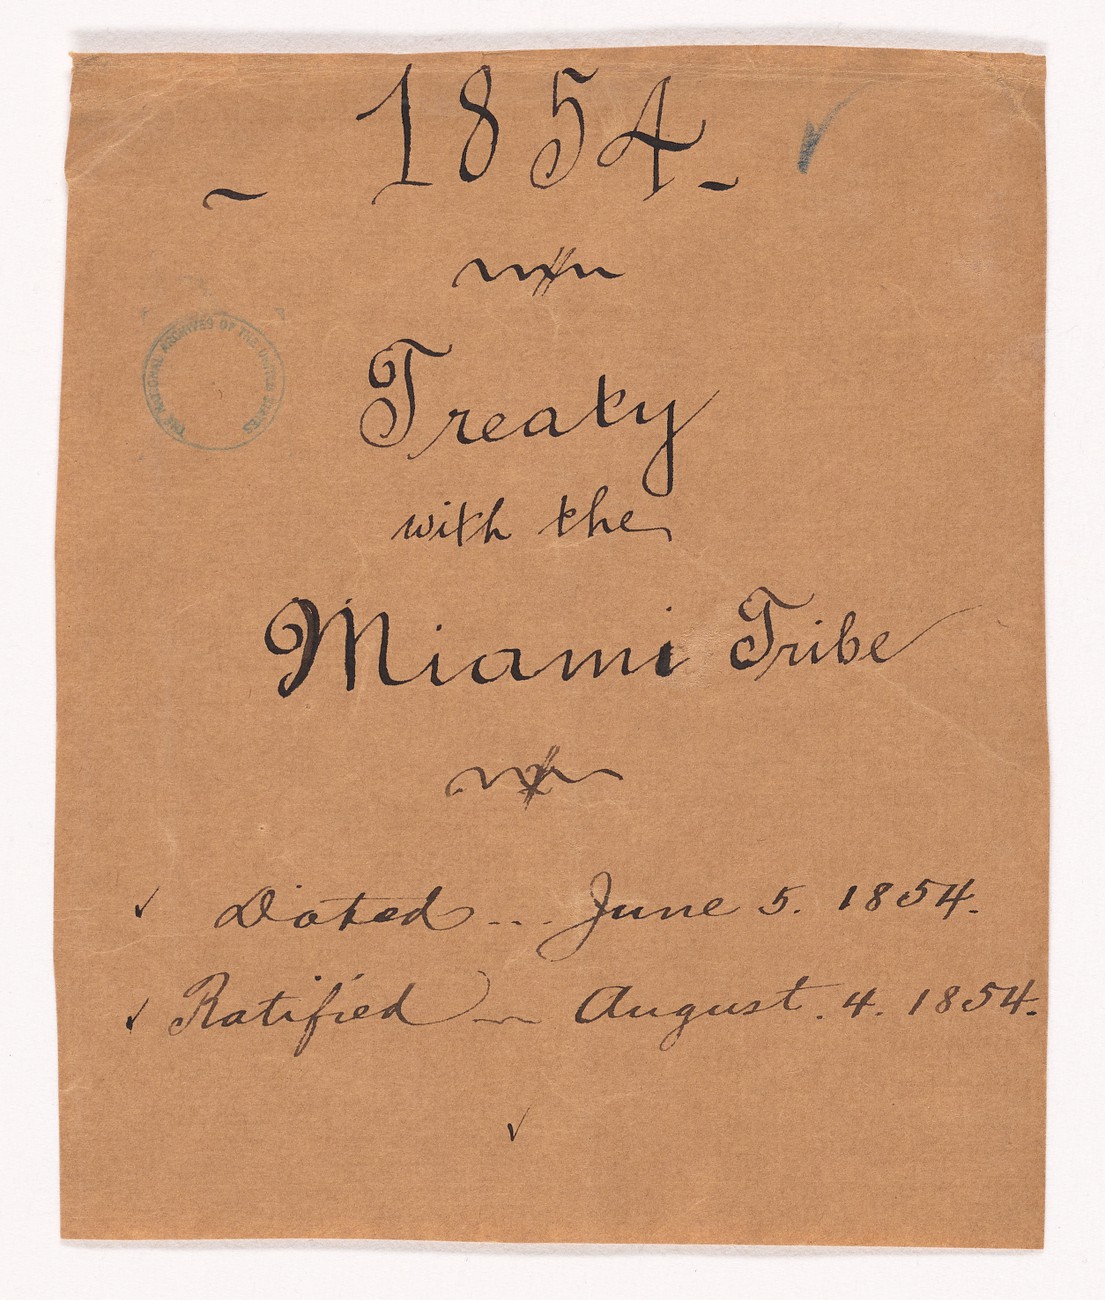 - 1854 -
THE NATIONAL ARCHIVES OF THE UNITED STATES
Treaty
with the
Miami Tribe
✓ Dated -- June 5. 1854.
✓ Ratified - August. 4. 1854.